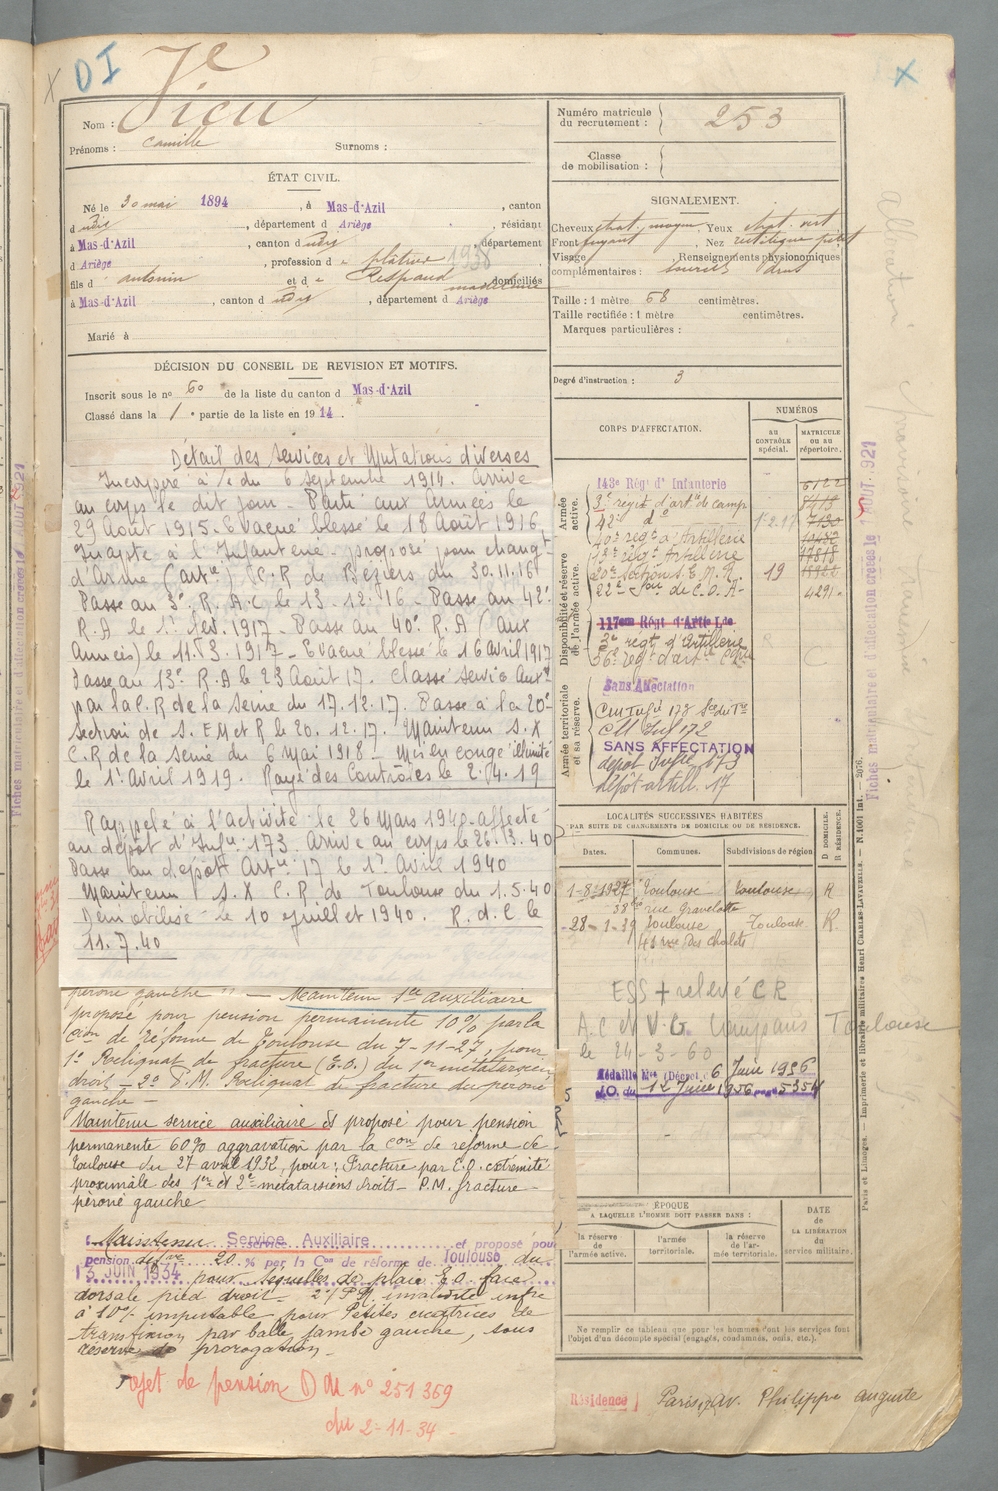 DI
Nom : Vieu
Prénoms : Camille Surnoms :
ÉTAT CIVIL.
Né le 30 mai 1894, à Mas-d'Azil, canton
d udit, département d Ariège, résidant
à Mas-d'Azil, canton d udit département
d Ariège, profession de plâtrier 1938
fils d' Antonin et de Respaud Madeleine domiciliés
à Mas-d'Azil, canton d udit, département d Ariège
Marié à
DÉCISION DU CONSEIL DE REVISION ET MOTIFS.
Inscrit sous le n° 60 de la liste du canton d Mas-d'Azil
Classé dans la 1e partie de la liste en 1914.
Détail des Services et Mutations diverses
Incorporé à c/ du 6 septembre 1914. Arrivé
au corps le dit jour - Parti aux Armées le
29 Août 1915. Evacué blessé le 18 Août 1916
Inapte à l'Infanterie - proposé pour changt
d'Arme (artie) C.R de Béziers du 30.11.16
Passé au 3e R.A.C le 13.12.16 - Passé au 42e
R.A le 1er fév. 1917 - Passé au 40e R.A (aux
Armées) le 11.3.1917 - Evacué blessé le 16 avril 1917
Passé au 13e R.A le 23 Août 17. Classé Servic Auxre
par la C.R de la Seine du 17.12.17. Passé à la 20e
Section de S.EM et R le 20.12.17. Maintenu S.X
C.R de la Seine du 6 Mai 1918 - Mis en congé illimité
le 1er Avril 1919. Rayé des Contrôles le 2.4.19
Rappelé à l'activité le 26 Mars 1940 - affecté
au dépôt d'Infie 173. Arrivé au corps le 26.3.40
Passé au dépôt Artie 17 le 1er Avril 1940
Maintenu S.X C.R de Toulouse du 1.5.40
Démobilisé le 10 juillet 1940. R.d.C le
11.7.40
péroné gauche" - Maintenu Sce auxiliaire
proposé pour pension permanente 10% par la
Con de réforme de Toulouse du 7-11-27, pour
1° Reliquat de fracture (E.O.) du 1er métatarsien
droit - 2° P.M. Reliquat de fracture du péroné
gauche -
Maintenu service auxiliaire et proposé pour pension
permanente 60% aggravation par la Con de réforme de
Toulouse du 27 avril 1932, pour : Fracture par E.O. extrémité
proximale des 1er et 2e métatarsiens droits - P.M. fracture
péroné gauche
Maintenu Service Auxiliaire et proposé pour
pension défive 20 % par la Con de réforme de Toulouse du
13 JUIN 1934 pour séquelles de plaie E.O. face
dorsale pied droit - 2°/ P.M. invalidité infre
à 10% imputable pour Petites cicatrices de
transfixion par balle jambe gauche, sous
réserve de prorogation -
rejet de pension D M n° 251 369
du 2-11-34 -
Numéro matricule du recrutement : 253
Classe de mobilisation :
SIGNALEMENT.
Cheveux chat. moyen Yeux chat. vert
Front fuyant, Nez rectiligne petit
Visage, Renseignements physionomiques
complémentaires : sourcils droits
Taille : 1 mètre 68 centimètres.
Taille rectifiée : 1 mètre centimètres.
Marques particulières :
Degré d'instruction : 3
CORPS D'AFFECTATION.
NUMÉROS
au CONTRÔLE spécial.
MATRICULE ou au répertoire.
Armée active.
Disponibilité et réserve de l'armée active.
Armée territoriale et sa réserve.
143e Régt d'Infanterie
3e régit d'artie de camp
42e do
40e régt d'Artillerie
20e Section S.E.M.R. 19
22e Son de C.O.A. 4291
117eme Régt d'Artie Lde
3e régt d'Artillerie
Sans Affectation
SANS AFFECTATION
dépôt Inftie 173
dépôt artill. 17
LOCALITÉS SUCCESSIVES HABITÉES
PAR SUITE DE CHANGEMENTS DE DOMICILE OU DE RÉSIDENCE.
Dates. Communes. Subdivisions de région D DOMICILE. R RÉSIDENCE.
1-8-1927 Toulouse Toulouse R
38bis rue Gravelotte
28-1-39 Toulouse Toulouse R.
41 rue des Chalets
ESS + relevé CR
A.C et V.G. Toulouse
le 24-3-60
Médaille Mre (Décret) 6 Juin 1956
J.O. du 12 Juin 1956 page 5354
ÉPOQUE
A LAQUELLE L'HOMME DOIT PASSER DANS :
la réserve de l'armée active.
l'armée territoriale.
la réserve de l'armée territoriale.
DATE de LA LIBÉRATION du service militaire.
Ne remplir ce tableau que pour les hommes dont les services font
l'objet d'un décompte spécial (engagés, condamnés, omis, etc.).
Résidence Paris, av. Philippe Auguste
Fiches matriculaire et d'affectation créées le AOUT 1921
Paris et Limoges. — Imprimerie et librairie militaires Henri CHARLES-LAVAUZELLE. — N. 1001 Int. — 2076.